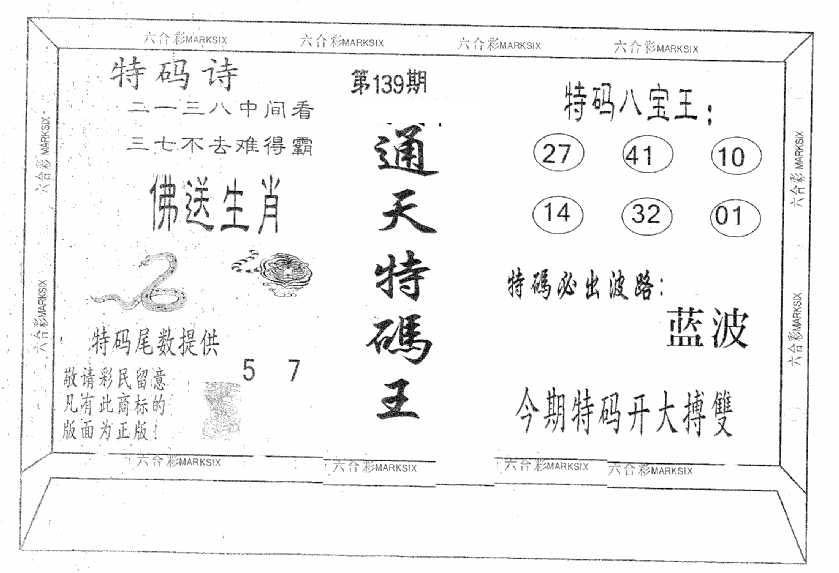 六合彩MARKSIX
六合彩MARKSIX
六合彩MARKSIX
六合彩MARKSIX
特码诗
二一三八中间看
三七不去难得霸
佛送生肖
特码尾数提供
5 7
敬请彩民留意
凡有此商标的
版面为正版！
第139期
通天特碼王
特码八宝王：
27 41 10
14 32 01
特碼必出波路：
蓝波
今期特码开大搏雙
六合彩MARKSIX
六合彩MARKSIX
六合彩MARKSIX
六合彩MARKSIX
六合彩MARKSIX
六合彩MARKSIX
六合彩MARKSIX
六合彩MARKSIX